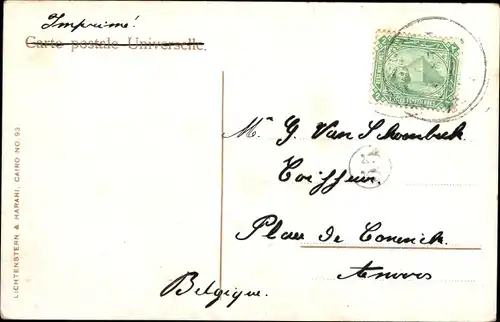 Imprimé!
Carte postale Universelle.
Mr G. Van Schoonbeek
Coiffeur,
Place de Coninck
Anvers
Belgique.
LICHTENSTERN & HARARI, CAIRO NO. 93